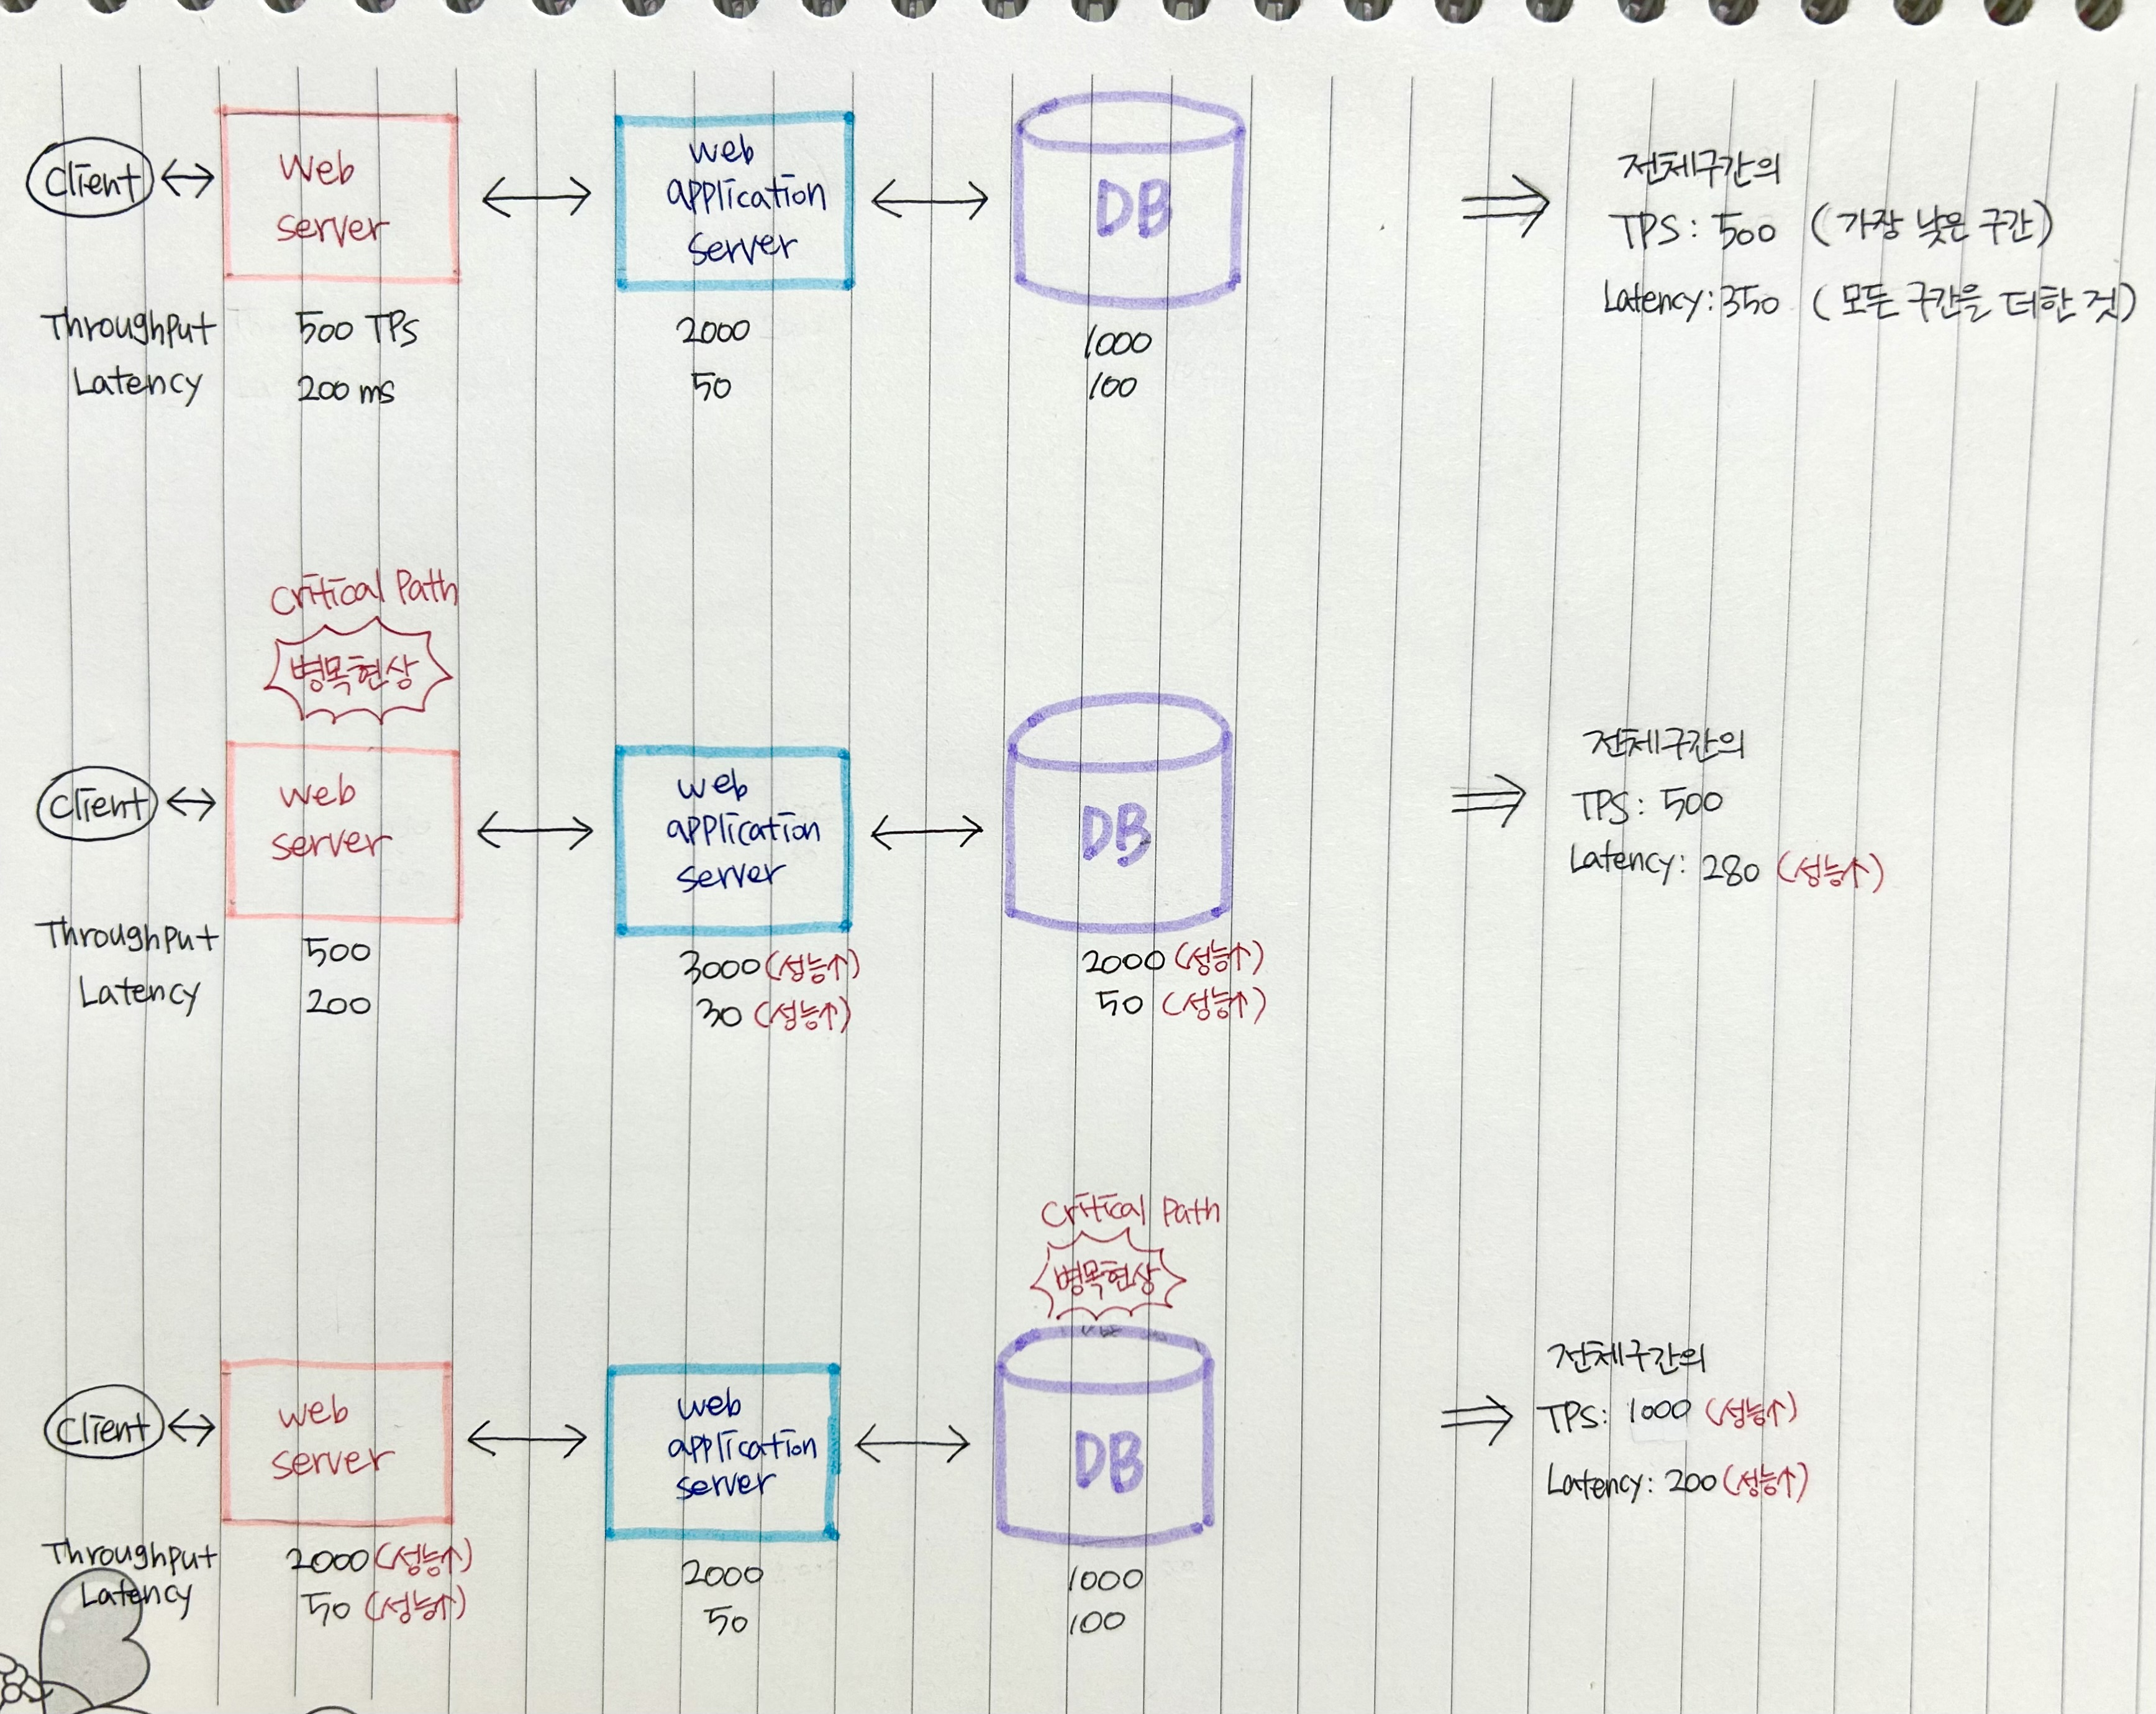 Client
Web
server
web
application
server
DB
전체구간의
TPS: 500 (가장 낮은 구간)
Latency: 350 (모든 구간을 더한 것)
Throughput 500 TPS 2000 1000
Latency 200 ms 50 100
Critical Path
병목현상
Client
web
server
web
application
server
DB
전체구간의
TPS: 500
Latency: 280 (성능↑)
Throughput 500 3000 (성능↑) 2000 (성능↑)
Latency 200 30 (성능↑) 50 (성능↑)
Critical Path
병목현상
Client
web
server
web
application
server
DB
전체구간의
TPS: 1000 (성능↑)
Latency: 200 (성능↑)
Throughput 2000 (성능↑) 2000 1000
Latency 50 (성능↑) 50 100